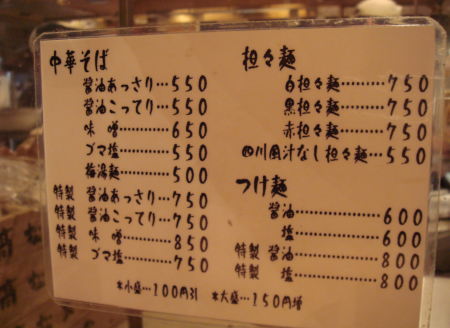 中華そば
醤油あっさり…550
醤油こってり…550
味 噌…………650
ゴマ塩…………550
梅湯麺…………500
特製 醤油あっさり…750
特製 醤油こってり…750
特製 味 噌…………850
特製 ゴマ塩…………750
担々麺
白担々麺………750
黒担々麺………750
赤担々麺………750
四川風汁なし担々麺…550
つけ麺
醤油………………600
塩………………600
特製 醤油………………800
特製 塩………………800
*小盛…100円引 *大盛…150円増